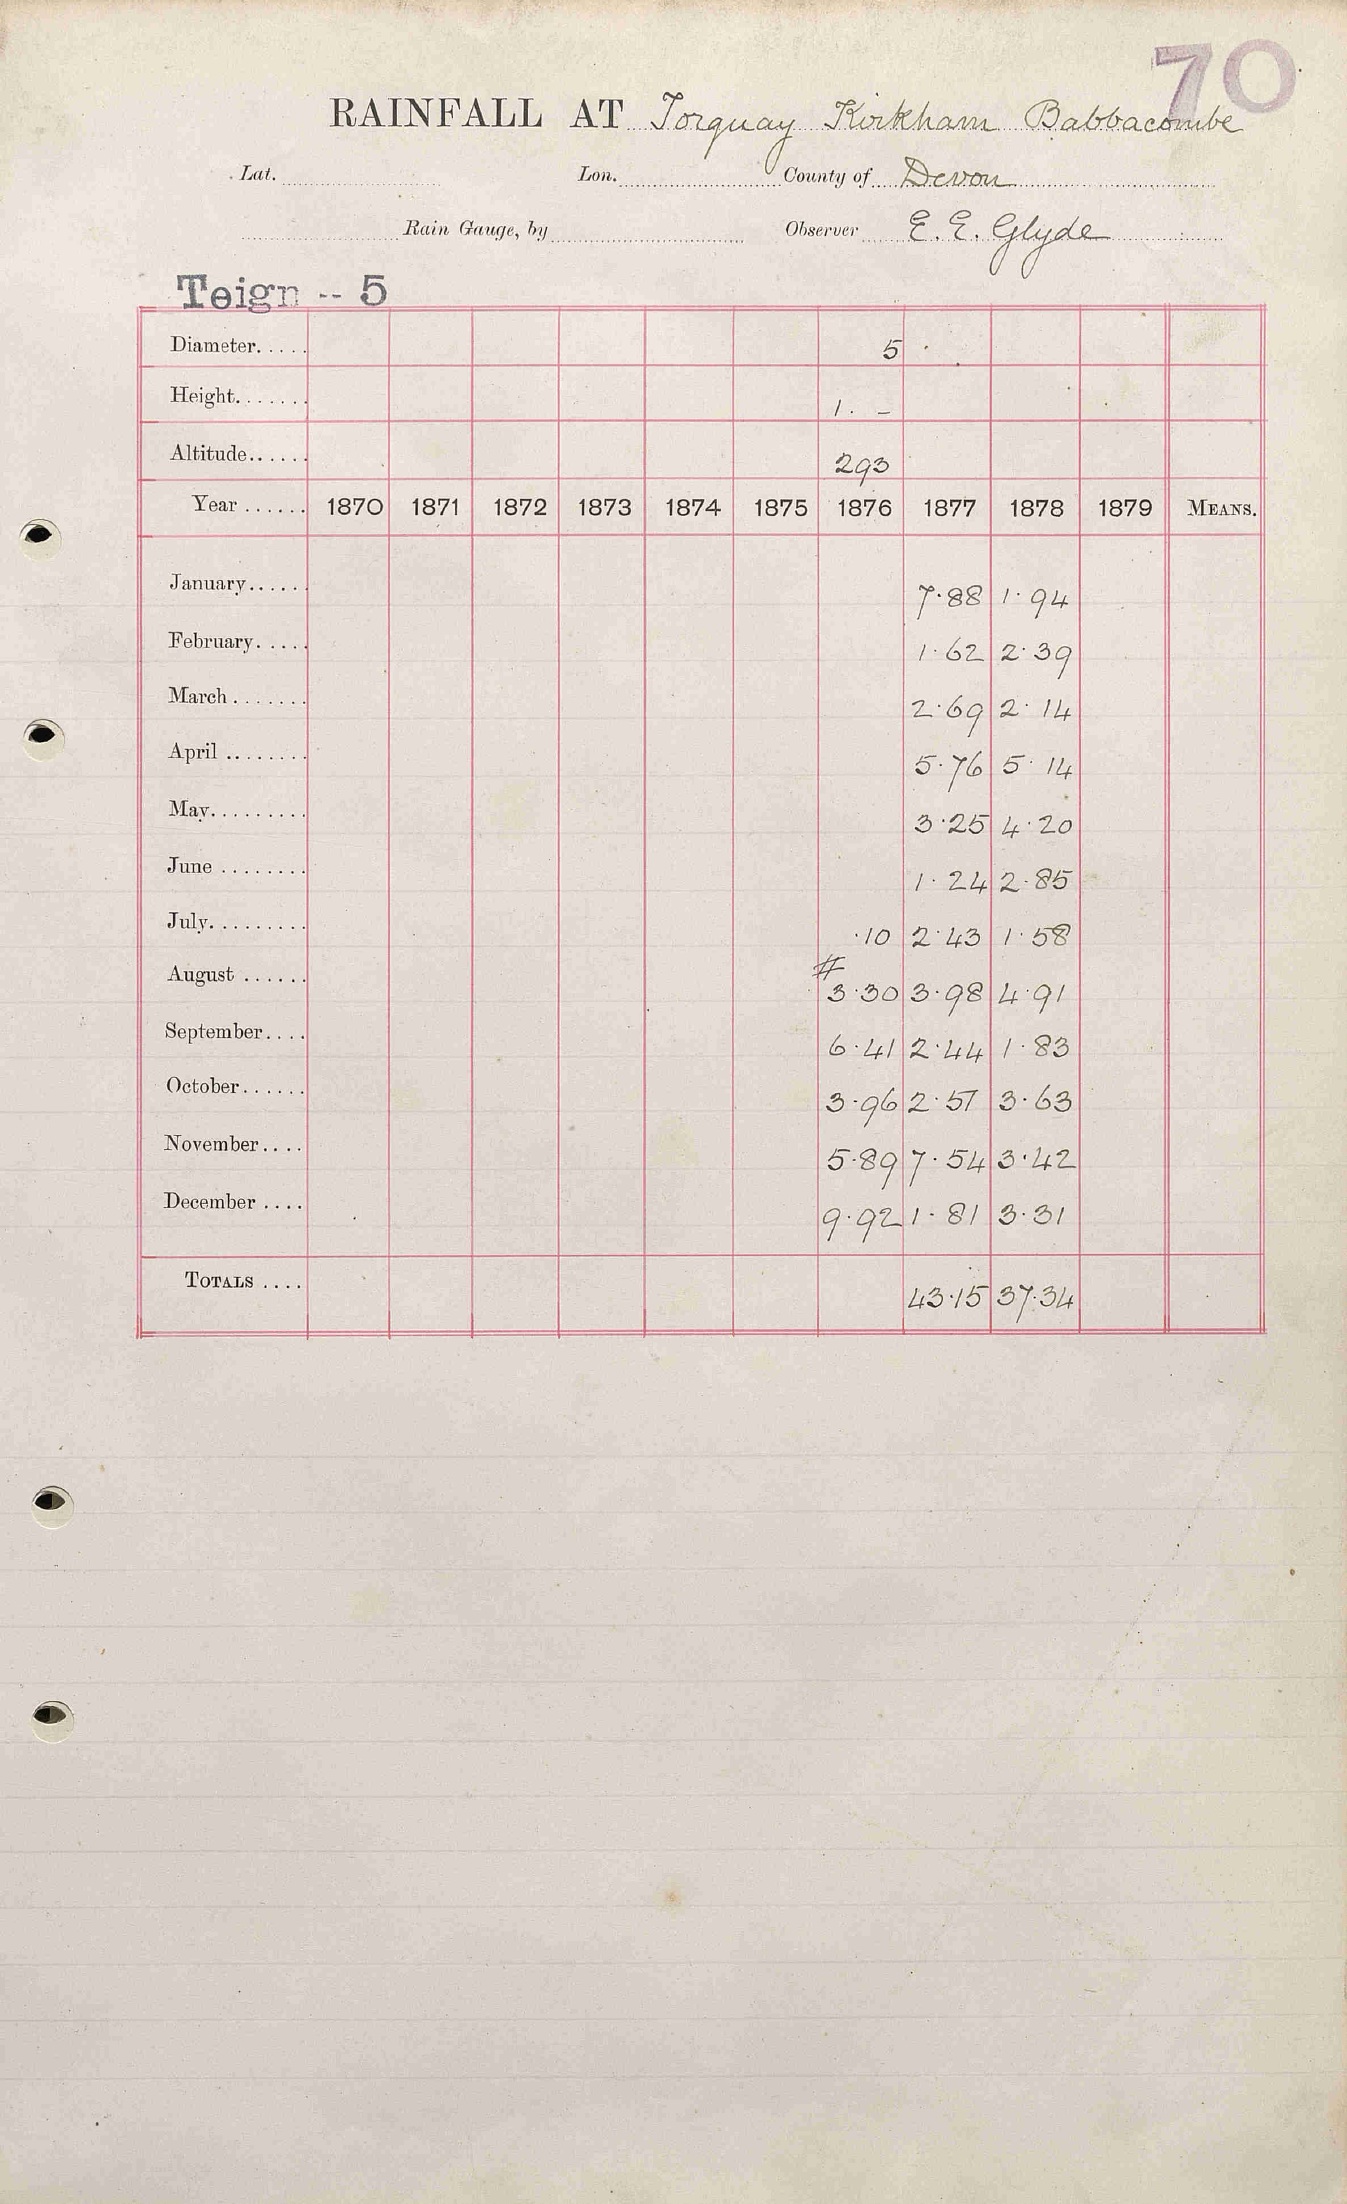 70
RAINFALL AT Torquay Kirkham Babbacombe
Lat. Lon. County of Devon
Rain Gauge, by Observer E. E. Glyde
Teign -- 5
Diameter..... 5
Height....... 1. –
Altitude...... 293
Year ...... 1870 1871 1872 1873 1874 1875 1876 1877 1878 1879 MEANS.
January...... 7·88 1·94
February..... 1·62 2·39
March ....... 2·69 2·14
April ........ 5·76 5·14
May......... 3·25 4·20
June ........ 1·24 2·85
July......... ·10 2·43 1·58
August ...... # 3·30 3·98 4·91
September.... 6·41 2·44 1·83
October...... 3·96 2·51 3·63
November.... 5·89 7·54 3·42
December .... 9·92 1·81 3·31
TOTALS .... 43·15 37·34